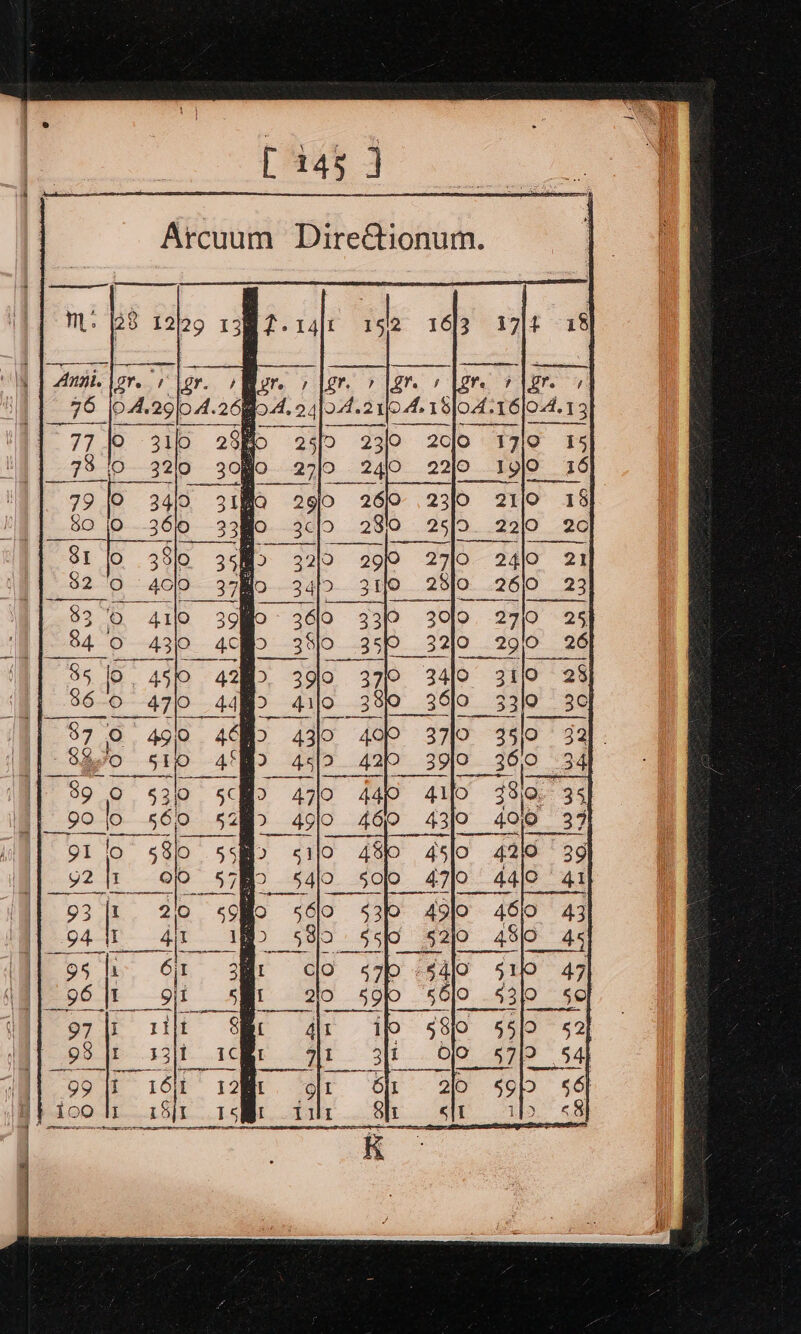 [ 145 ]
Arcuum Directionum.
♏: 28 12 29 13 ♐. 14 1 15 2 16 3 17 4 18
Anni. gr. ′ gr. ′ gr. ′ gr. ′ gr. ′ gr. ′ gr. ′
76 0A.29 0A.26 0A.24 0A.21 0A.18 0A.16 0A.13
77 0 31 0 28 0 25 0 23 0 20 0 17 0 15
78 0 32 0 30 0 27 0 24 0 22 0 19 0 16
79 0 34 0 31 0 29 0 26 0 23 0 21 0 18
80 0 36 0 33 0 30 0 28 0 25 0 22 0 20
81 0 38 0 35 0 32 0 29 0 27 0 24 0 21
82 0 40 0 37 0 34 0 31 0 28 0 26 0 23
83 0 41 0 39 0 36 0 33 0 30 0 27 0 25
84 0 43 0 40 0 38 0 35 0 32 0 29 0 26
85 0 45 0 42 0 39 0 37 0 34 0 31 0 28
86 0 47 0 44 0 41 0 38 0 36 0 33 0 30
87 0 49 0 46 0 43 0 40 0 37 0 35 0 32
88 0 51 0 48 0 45 0 42 0 39 0 36 0 34
89 0 53 0 50 0 47 0 44 0 41 0 38 0 35
90 0 56 0 52 0 49 0 46 0 43 0 40 0 37
91 0 58 0 55 0 51 0 48 0 45 0 42 0 39
92 1 0 0 57 0 54 0 50 0 47 0 44 0 41
93 1 2 0 59 0 56 0 53 0 49 0 46 0 43
94 1 4 1 1 0 58 0 55 0 52 0 48 0 45
95 1 6 1 3 1 0 0 57 0 54 0 51 0 47
96 1 9 1 5 1 2 0 59 0 56 0 53 0 50
97 1 11 1 8 1 4 1 1 0 58 0 55 0 52
98 1 13 1 10 1 7 1 3 1 0 0 57 0 54
99 1 16 1 12 1 9 1 6 1 2 0 59 0 56
100 1 18 1 15 1 11 1 8 1 5 1 1 0 58
K